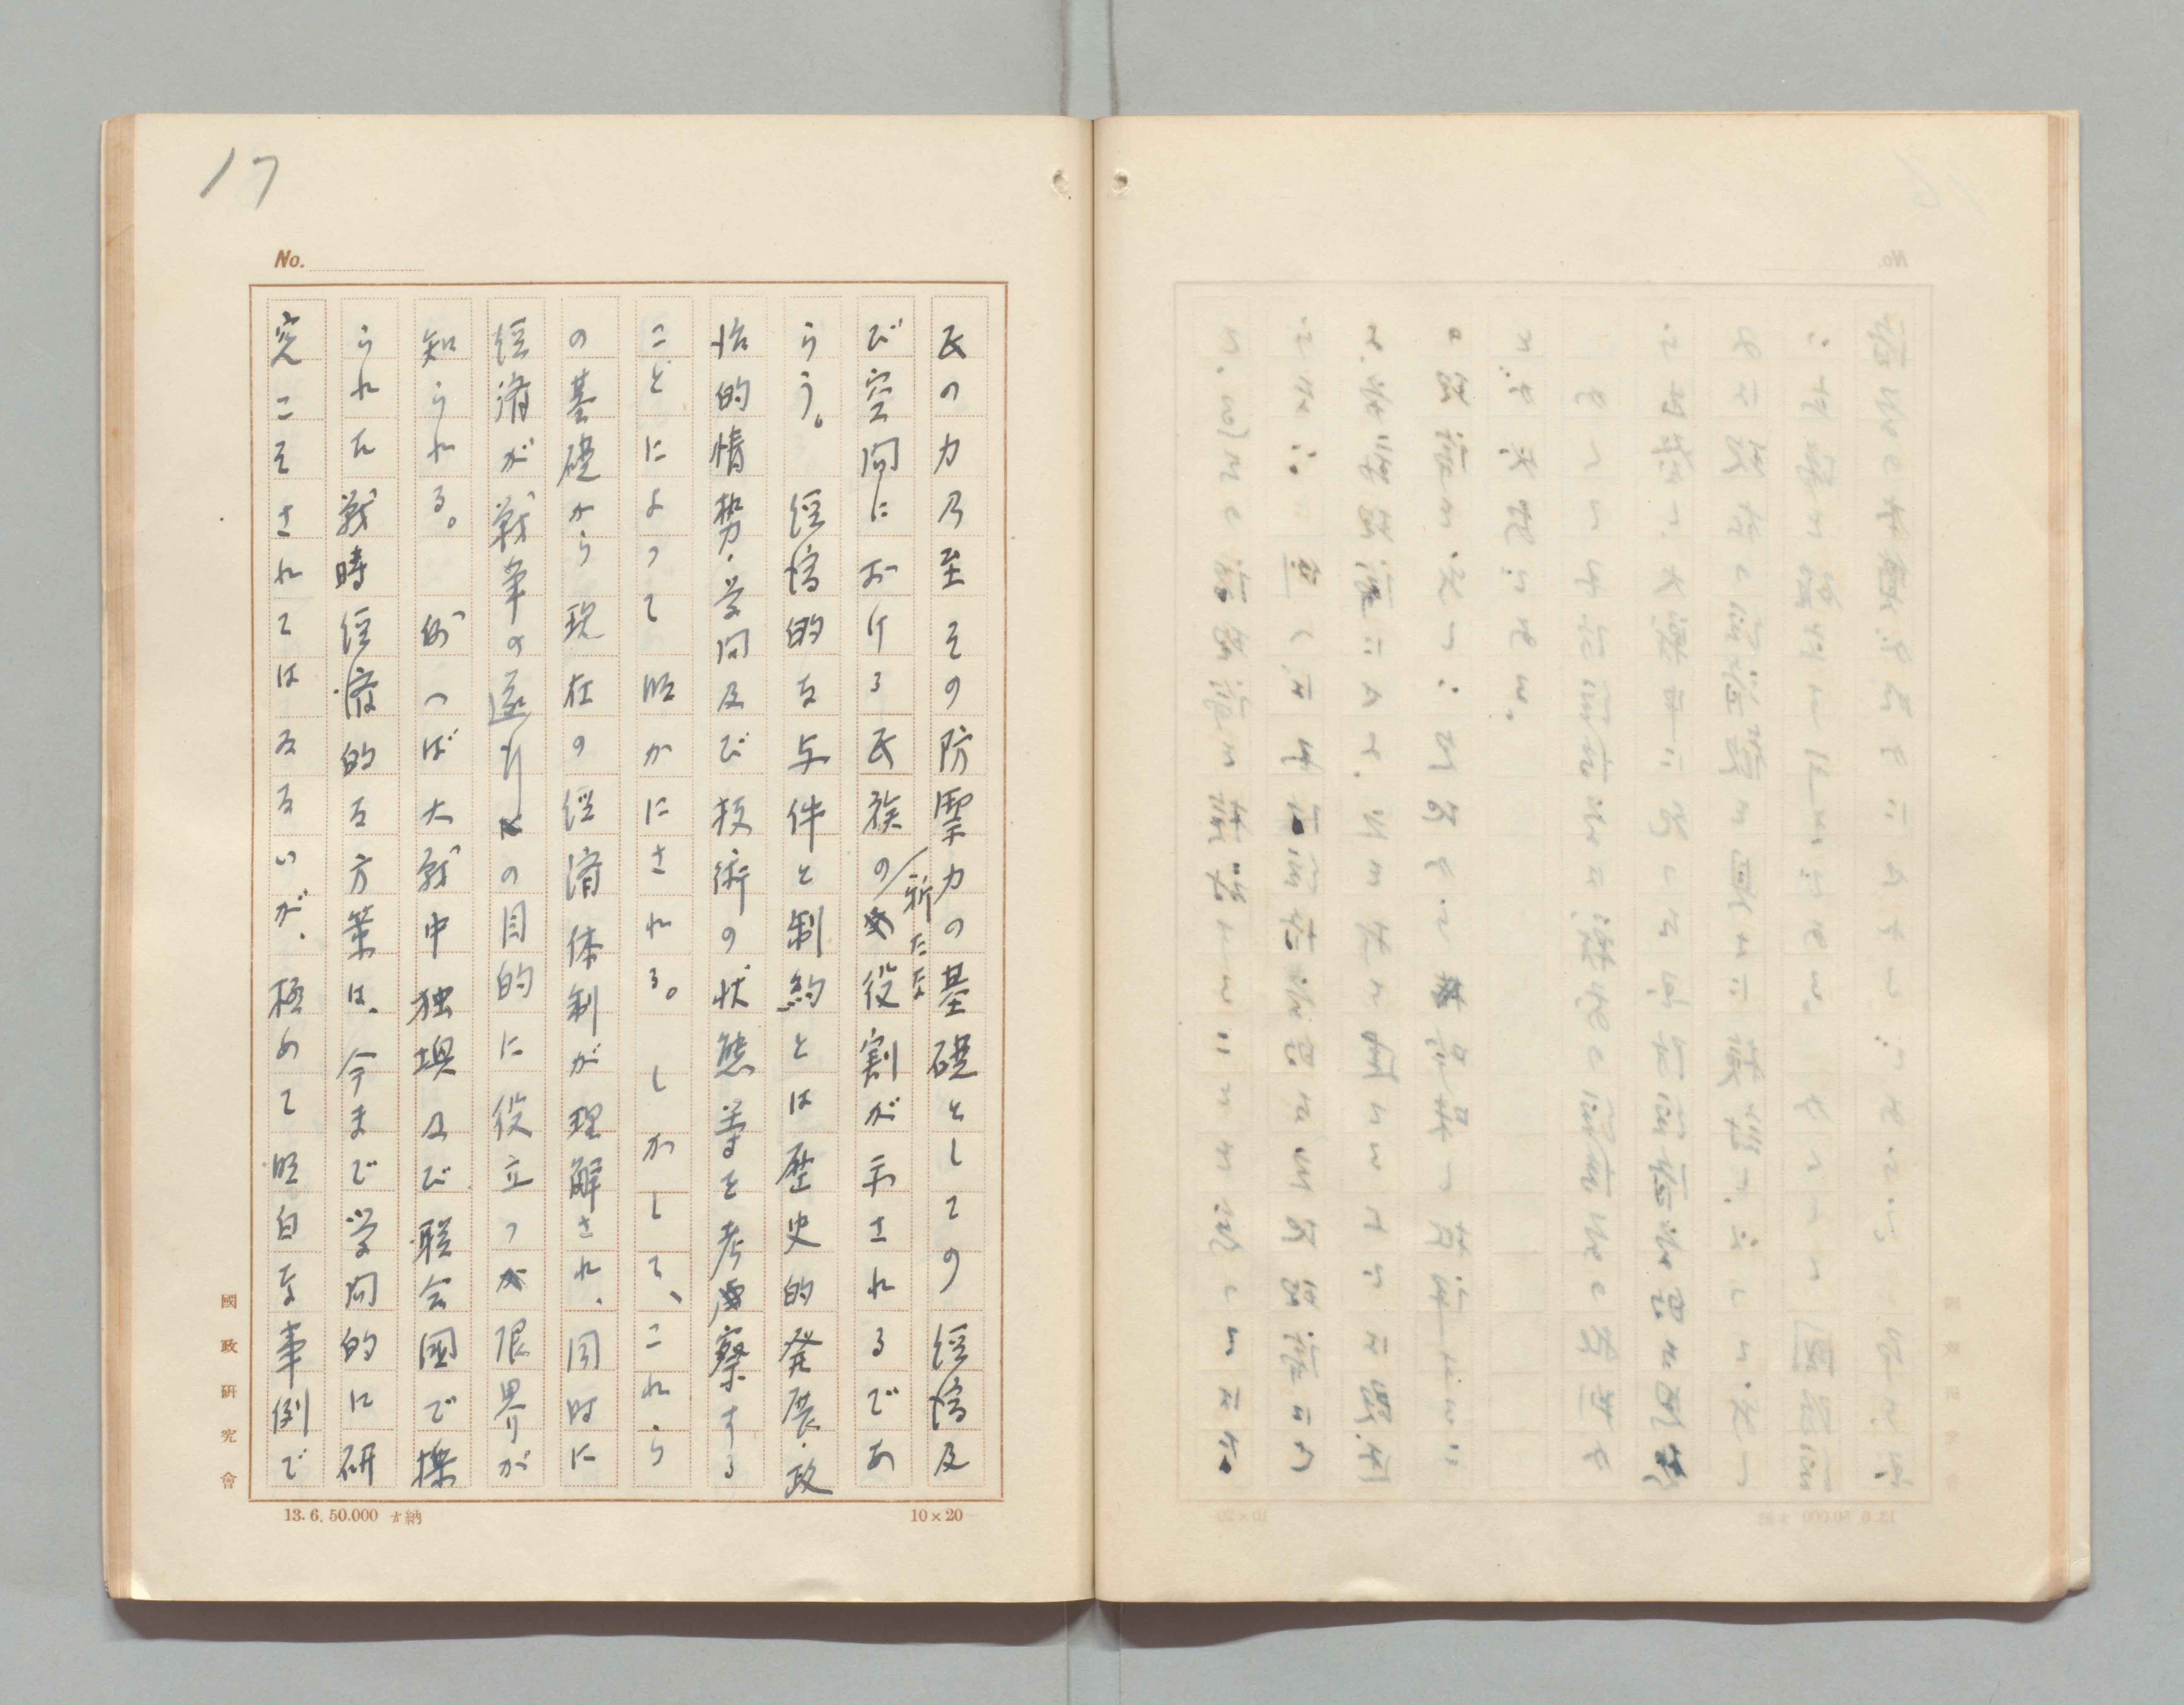 17
No.
民の力乃至その防禦力の基礎としての経済及
び空間における民族の新たな役割が示されるであ
らう。 経済的な与件と制約とは歴史的発展・政
治的情勢・学問及び技術の状態等を考察する
ことによって明かにされる。 しかして、これら
の基礎から現在の経済体制が理解され、同時に
経済が戦争の遂行の目的に役立つ限界が
知られる。 例へば大戦中独墺及び聯合国で操
られた戦時経済的な方策は、今まで学問的に研
究こそされてはゐないが、極めて明白な事例で
國政研究會
13. 6. 50.000 納
10×20